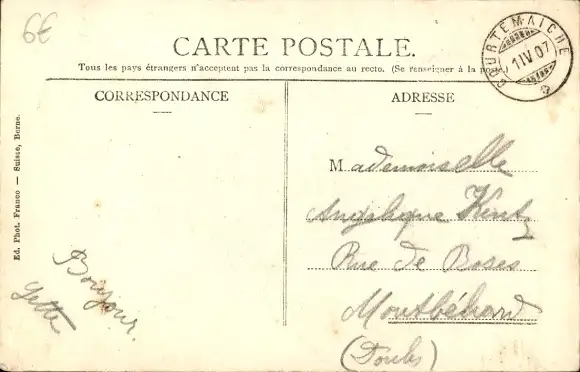 6€
CARTE POSTALE.
Tous les pays étrangers n'acceptent pas la correspondance au recto. (Se renseigner à la poste.)
COURTEMAICHE
1 IV 07
CORRESPONDANCE
ADRESSE
Ed. Phot. Franco — Suisse, Berne.
Mademoiselle
Angélique Kintz
Rue de Boses
Montbéliard
(Doubs)
Bonjour.
Yette